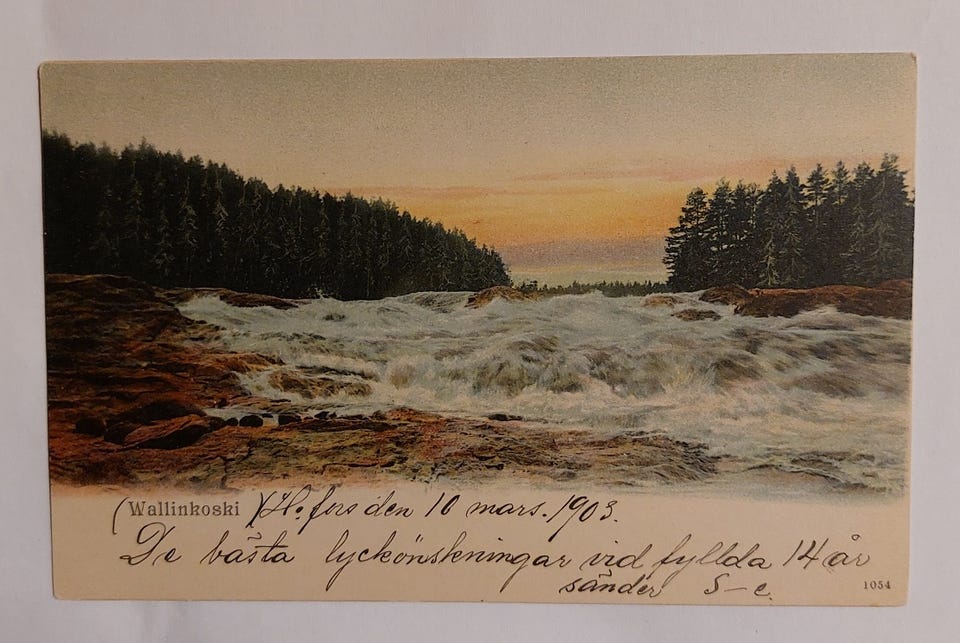 (Wallinkoski) H:fors den 10 mars. 1903.
De bästa lyckönskningar vid fyllda 14 år
sänder S-e.
1054